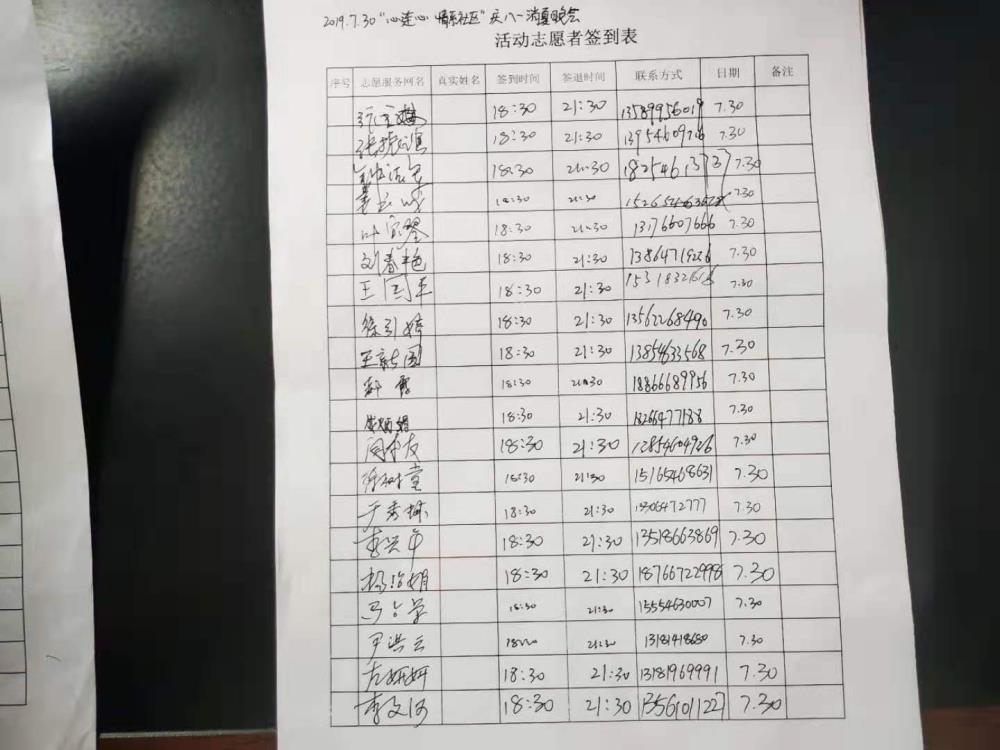 2019.7.30 "心连心 情系社区" 庆八一消夏晚会
活动志愿者签到表
序号 志愿服务网名 真实姓名 签到时间 签退时间 联系方式 日期 备注
18:30 21:30 13589956019 7.30
18:30 21:30 7.30
18:30 21:30 18254613737 7.30
18:30 21:30 7.30
18:30 21:30 13176607666 7.30
刘春艳 18:30 21:30 13864719226 7.30
王国军 18:30 21:30 7.30
徐引婷 18:30 21:30 13562268490 7.30
王新国 18:30 21:30 13854633568 7.30
郭雪 18:30 21:30 18866689956 7.30
18:30 21:30 18266477188 7.30
18:30 21:30 7.30
徐树堂 18:30 21:30 15165468631 7.30
于秀梅 18:30 21:30 7.30
李兴年 18:30 21:30 13518663869 7.30
杨治娟 18:30 21:30 18766722998 7.30
18:30 21:30 15554630007 7.30
尹洪云 18:30 21:30 13181418680 7.30
左妍妍 18:30 21:30 13181969991 7.30
李文河 18:30 21:30 13561011227 7.30